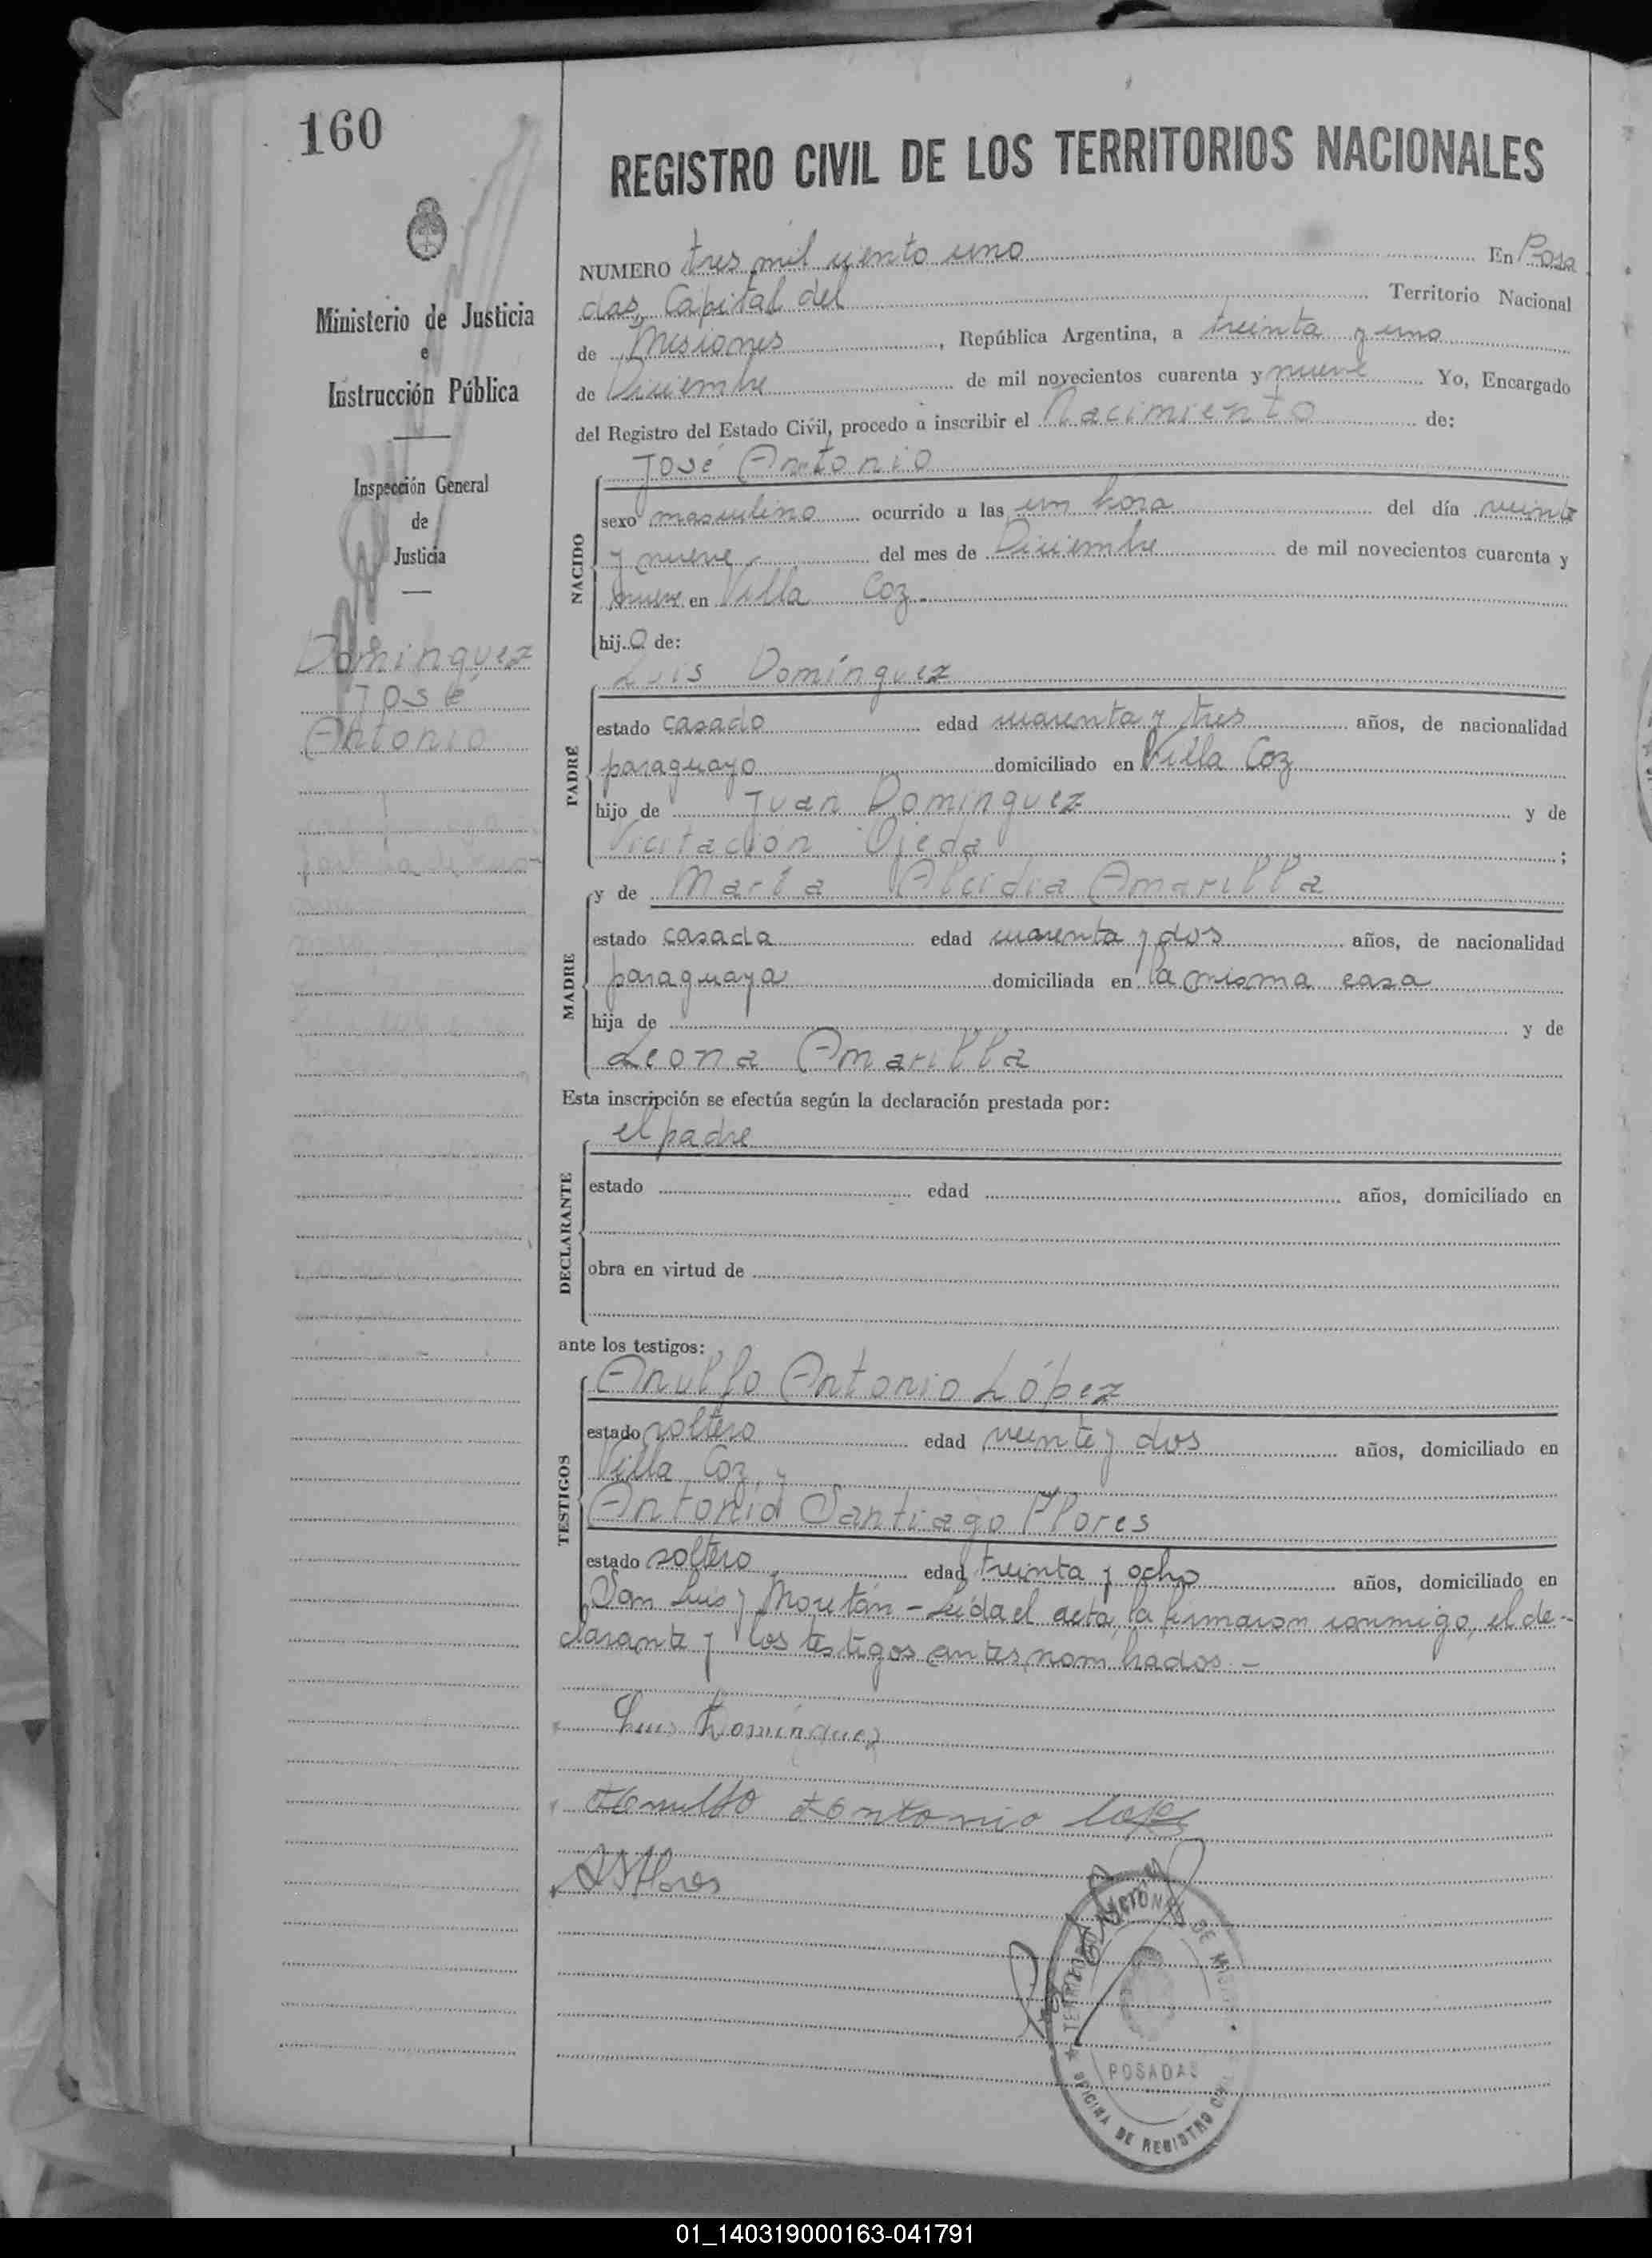 160
REGISTRO CIVIL DE LOS TERRITORIOS NACIONALES
Ministerio de Justicia
e
Instrucción Pública
Inspección General
de
Justicia
Dominguez
José
Antonio
NUMERO tres mil ciento uno En Posa
das, Capital del Territorio Nacional
de Misiones, República Argentina, a treinta y uno
de Diciembre de mil novecientos cuarenta y nueve Yo, Encargado
del Registro del Estado Civil, procedo a inscribir el Nacimiento de:
NACIDO
José Antonio
sexo masculino ocurrido a las un hora del día veinte
y nueve del mes de Diciembre de mil novecientos cuarenta y
nueve en Villa Coz.
hijo de:
PADRE
Luis Domínguez
estado casado edad cuarenta y tres años, de nacionalidad
paraguayo domiciliado en Villa Coz
hijo de Juan Dominguez y de
Vicitación Ojeda ;
MADRE
y de María Alcidia Amarilla
estado casada edad cuarenta y dos años, de nacionalidad
paraguaya domiciliada en la misma casa
hija de y de
Leona Amarilla
Esta inscripción se efectúa según la declaración prestada por:
DECLARANTE
el padre
estado edad años, domiciliado en
obra en virtud de
ante los testigos:
TESTIGOS
Anulfo Antonio López
estado soltero edad veinte y dos años, domiciliado en
Villa Coz y
Antonio Santiago Flores
estado soltero edad treinta y ocho años, domiciliado en
San Luis y Moritán - Leída el acta, la firmaron conmigo, el de-
clarante y los testigos antes nombrados. -
Luis Domínguez
Antonio Lopez
A S Flores
TERRITORIO NACIONAL DE MISIONES
POSADAS
OFICINA DE REGISTRO CIVIL
01_140319000163-041791